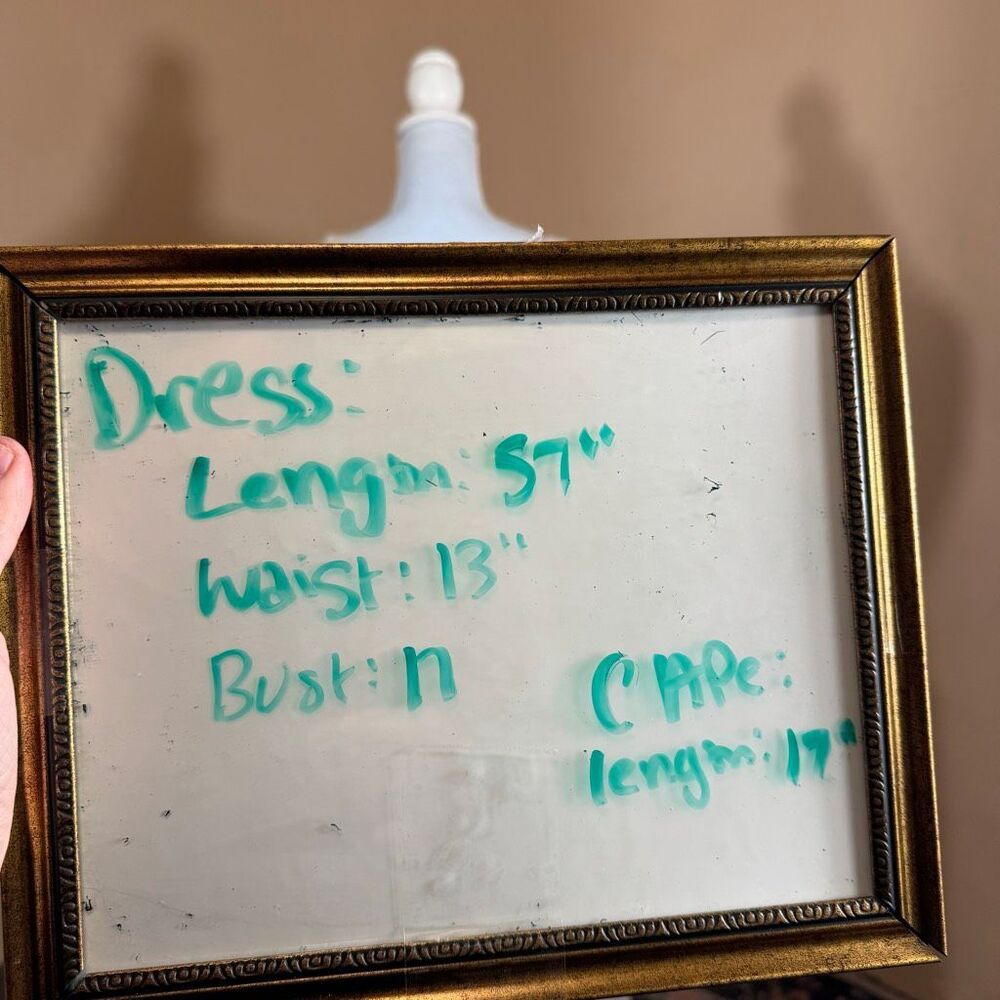 Dress:
Length: 57"
Waist: 13"
Bust: 17
CAPe:
length: 17"